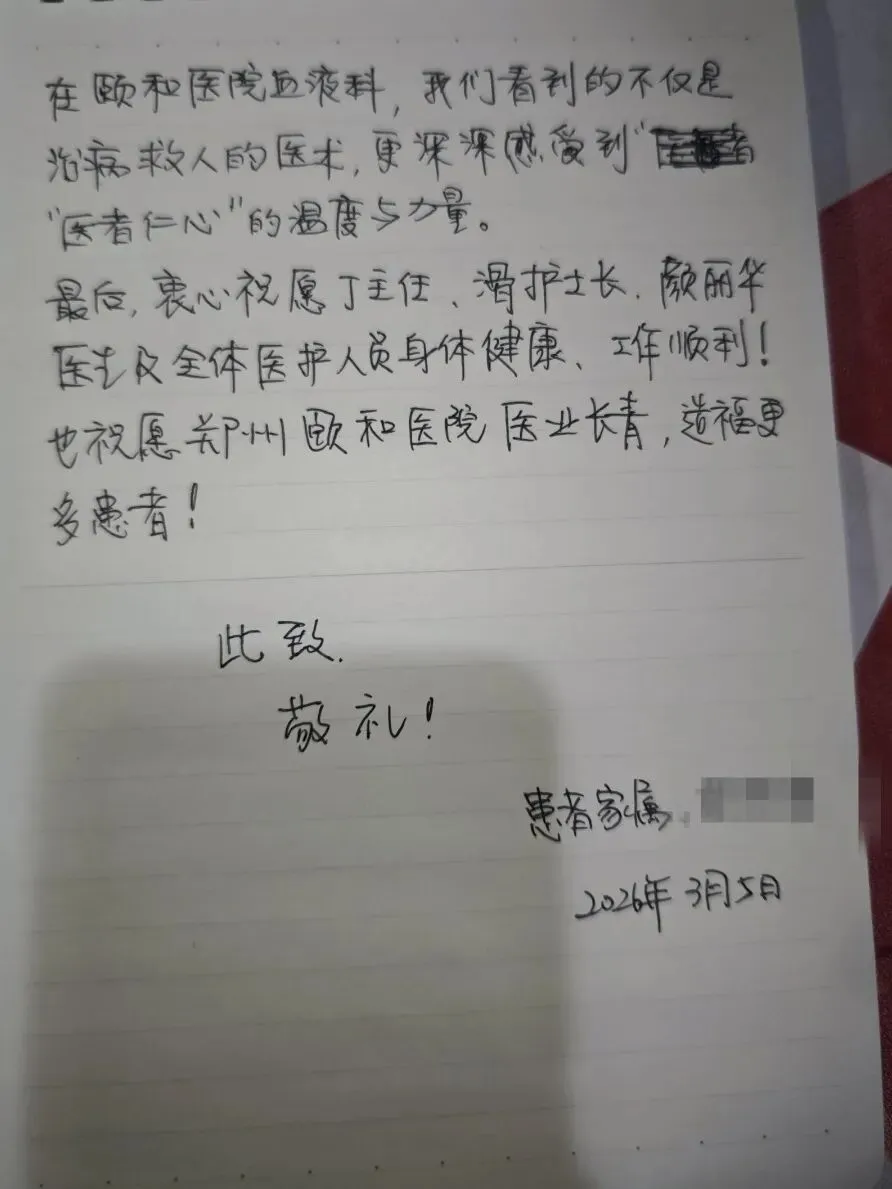 在颐和医院血液科，我们看到的不仅是
治病救人的医术，更深深感受到“
“医者仁心”的温度与力量。
最后，衷心祝愿丁主任、滑护士长、颜丽华
医生及全体医护人员身体健康、工作顺利！
也祝愿郑州颐和医院医业长青，造福更
多患者！
此致.
敬礼！
患者家属.
2026年3月5日